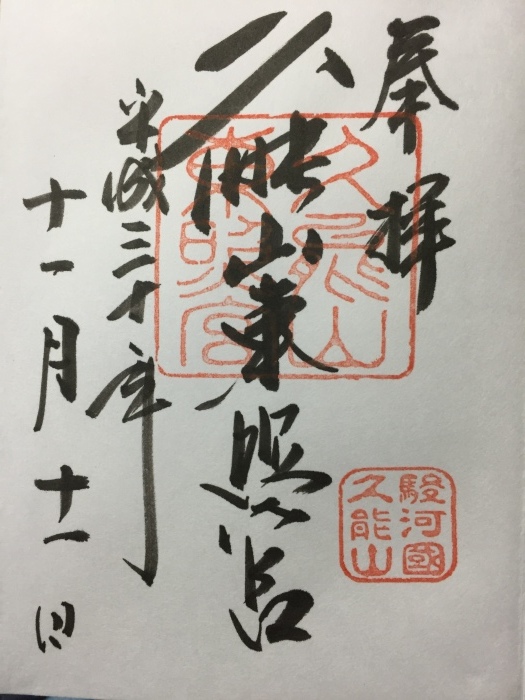 奉拝
久能山東照宮
平成三十年
十一月十一日
久能山
東照宮
駿河國
久能山